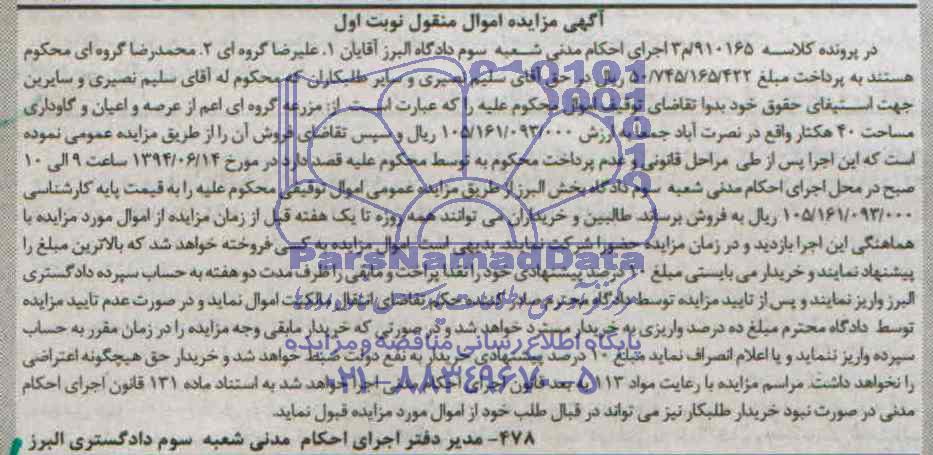 آگهی مزایده اموال منقول نوبت اول
در پرونده کلاسه ۹۱۰۱۶۵/م۳ اجرای احکام مدنی شعبه سوم دادگاه البرز آقایان ۱. علیرضا گروه ای ۲. محمدرضا گروه ای محکوم
هستند به پرداخت مبلغ ۵۰/۷۴۵/۱۶۵/۴۲۲ ریال در حق آقای سلیم نصیری و سایر طلبکاران که محکوم له آقای سلیم نصیری و سایرین
جهت استیفای حقوق خود بدوا تقاضای توقیف اموال محکوم علیه را که عبارت است از: مزرعه گروه ای اعم از عرصه و اعیان و گاوداری
مساحت ۴۰ هکتار واقع در نصرت آباد جمعا به ارزش ۱۰۵/۱۶۱/۰۹۳/۰۰۰ ریال و سپس تقاضای فروش آن را از طریق مزایده عمومی نموده
است که این اجرا پس از طی مراحل قانونی و عدم پرداخت محکوم به توسط محکوم علیه قصد دارد در مورخ ۱۳۹۴/۰۶/۱۴ ساعت ۹ الی ۱۰
صبح در محل اجرای احکام مدنی شعبه سوم دادگاه بخش البرز از طریق مزایده عمومی اموال توقیفی محکوم علیه را به قیمت پایه کارشناسی
۱۰۵/۱۶۱/۰۹۳/۰۰۰ ریال به فروش برساند. طالبین و خریداران می توانند همه روزه تا یک هفته قبل از زمان مزایده از اموال مورد مزایده با
هماهنگی این اجرا بازدید و در زمان مزایده حضورا شرکت نمایند. بدیهی است اموال مزایده به کسی فروخته خواهد شد که بالاترین مبلغ را
پیشنهاد نمایند و خریدار می بایستی مبلغ ۱۰ درصد پیشنهادی خود را نقدا پرداخت و مابقی را ظرف مدت دو هفته به حساب سپرده دادگستری
البرز واریز نمایند و پس از تایید مزایده توسط دادگاه محترم صادر کننده حکم تقاضای انتقال مالکیت اموال نماید و در صورت عدم تایید مزایده
توسط دادگاه محترم مبلغ ده درصد واریزی به خریدار مسترد خواهد شد و در صورتی که خریدار مابقی وجه مزایده را در زمان مقرر به حساب
سپرده واریز ننماید و یا اعلام انصراف نماید مبلغ ۱۰ درصد پیشنهادی خریدار به نفع دولت ضبط خواهد شد و خریدار حق هیچگونه اعتراضی
را نخواهد داشت. مراسم مزایده با رعایت مواد ۱۱۳ به بعد قانون اجرای احکام مدنی اجرا خواهد شد به استناد ماده ۱۳۱ قانون اجرای احکام
مدنی در صورت نبود خریدار طلبکار نیز می تواند در قبال طلب خود از اموال مورد مزایده قبول نماید.
۴۷۸- مدیر دفتر اجرای احکام مدنی شعبه سوم دادگستری البرز
ParsNamadData
پایگاه اطلاع رسانی مناقصه و مزایده
۰۲۱-۸۸۳۴۹۶۷۰-۵